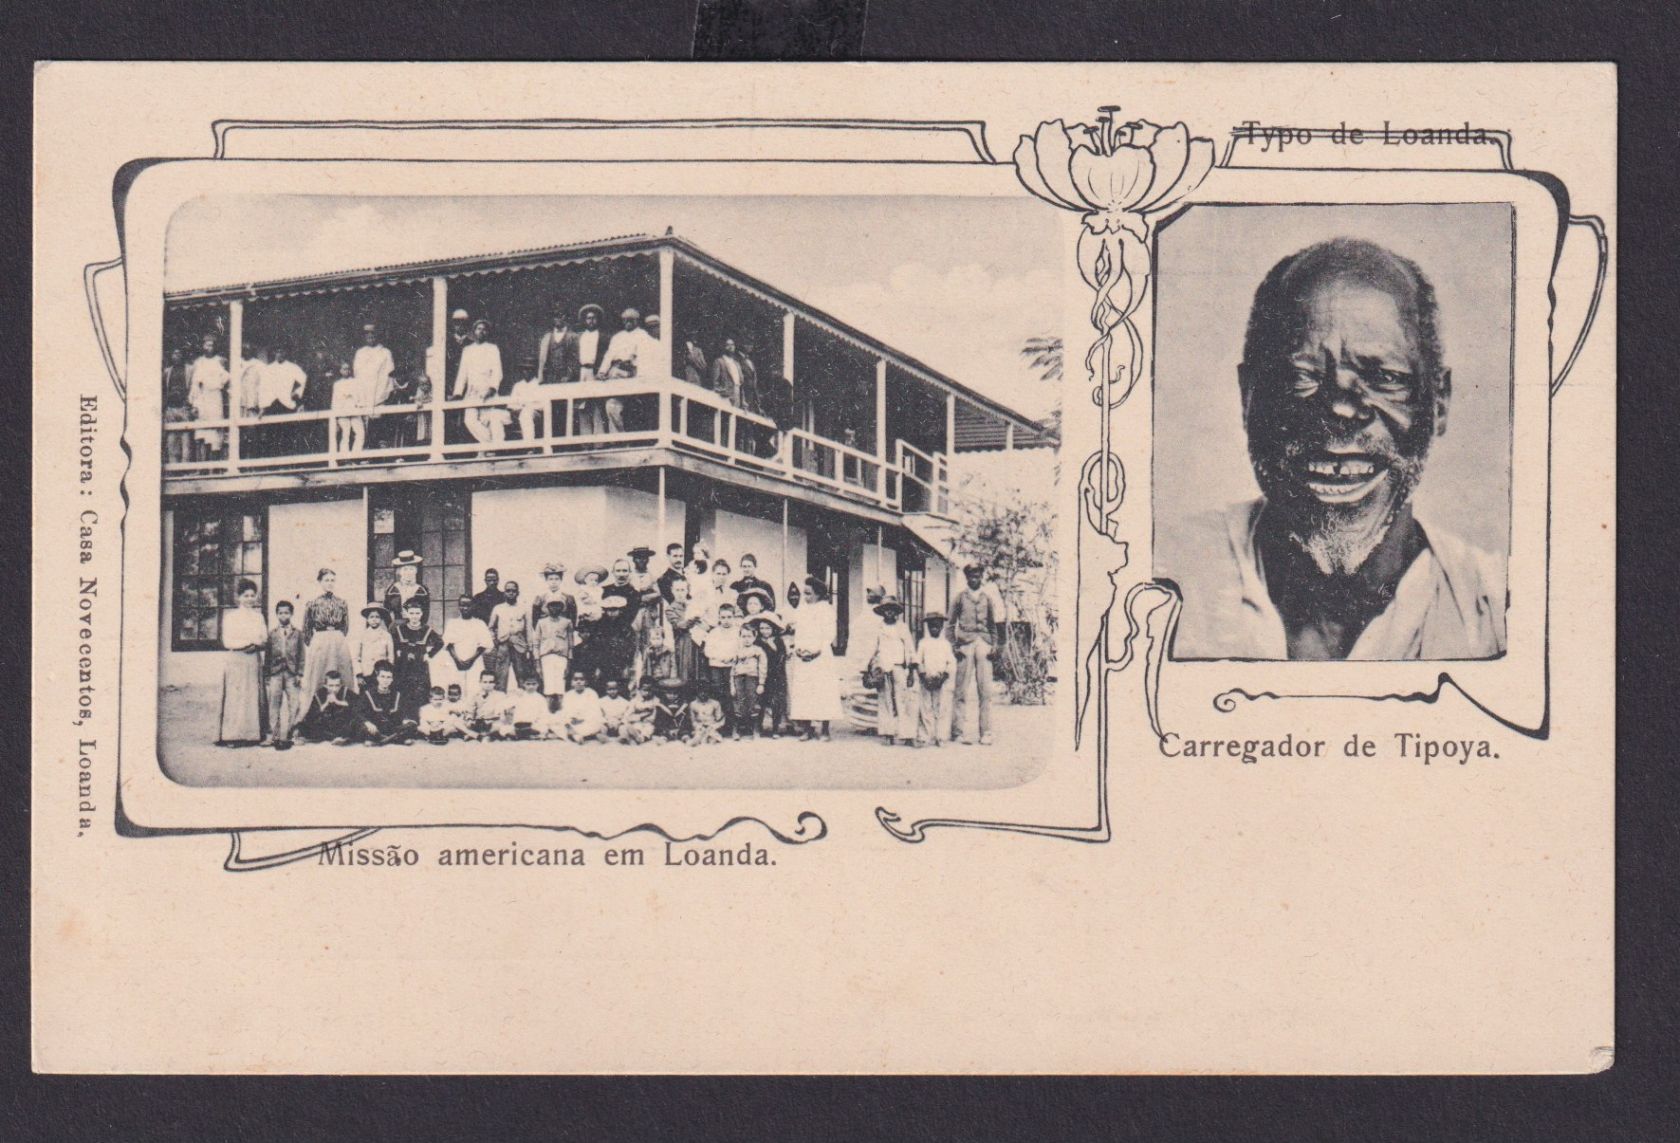 Typo de Loanda.
Carregador de Tipoya.
Missão americana em Loanda.
Editora: Casa Novecentos, Loanda.